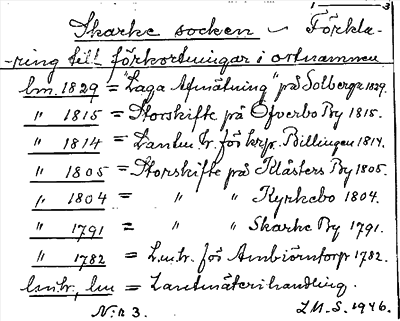 1 — 3
Skarke socken — Förkla-
-ring till förkortningar i ortnamnen
lm. 1829 = "Laga Afmätning" på Solberga 1829.
" 1815 = Storskifte på Öfverbo By 1815.
" 1814 = Lantm. hr. för krp. Billingen 1814.
" 1805 = Storskifte på Klästers By 1805.
" 1804 = " " Kyrkebo 1804.
" 1791 = " " Skarke By 1791.
" 1782 = L.m.hr. för Ambiörntorp 1782.
lm.hr., lm = Lantmäterihandling.
N:r 3.
I.M.S. 1946.